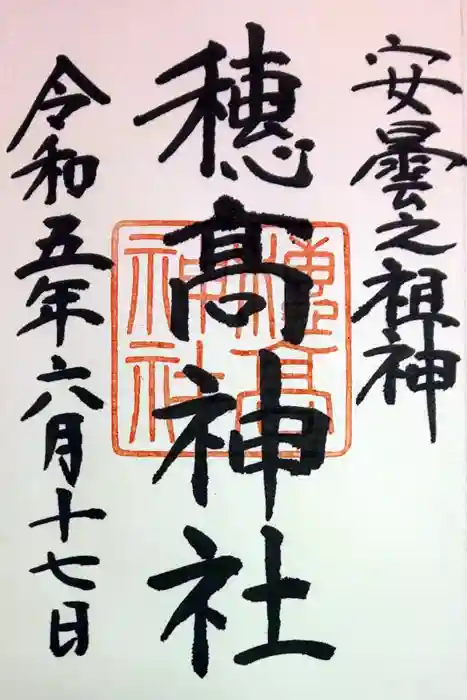 安曇之祖神
穂髙神社
穂高神社
令和五年六月十七日